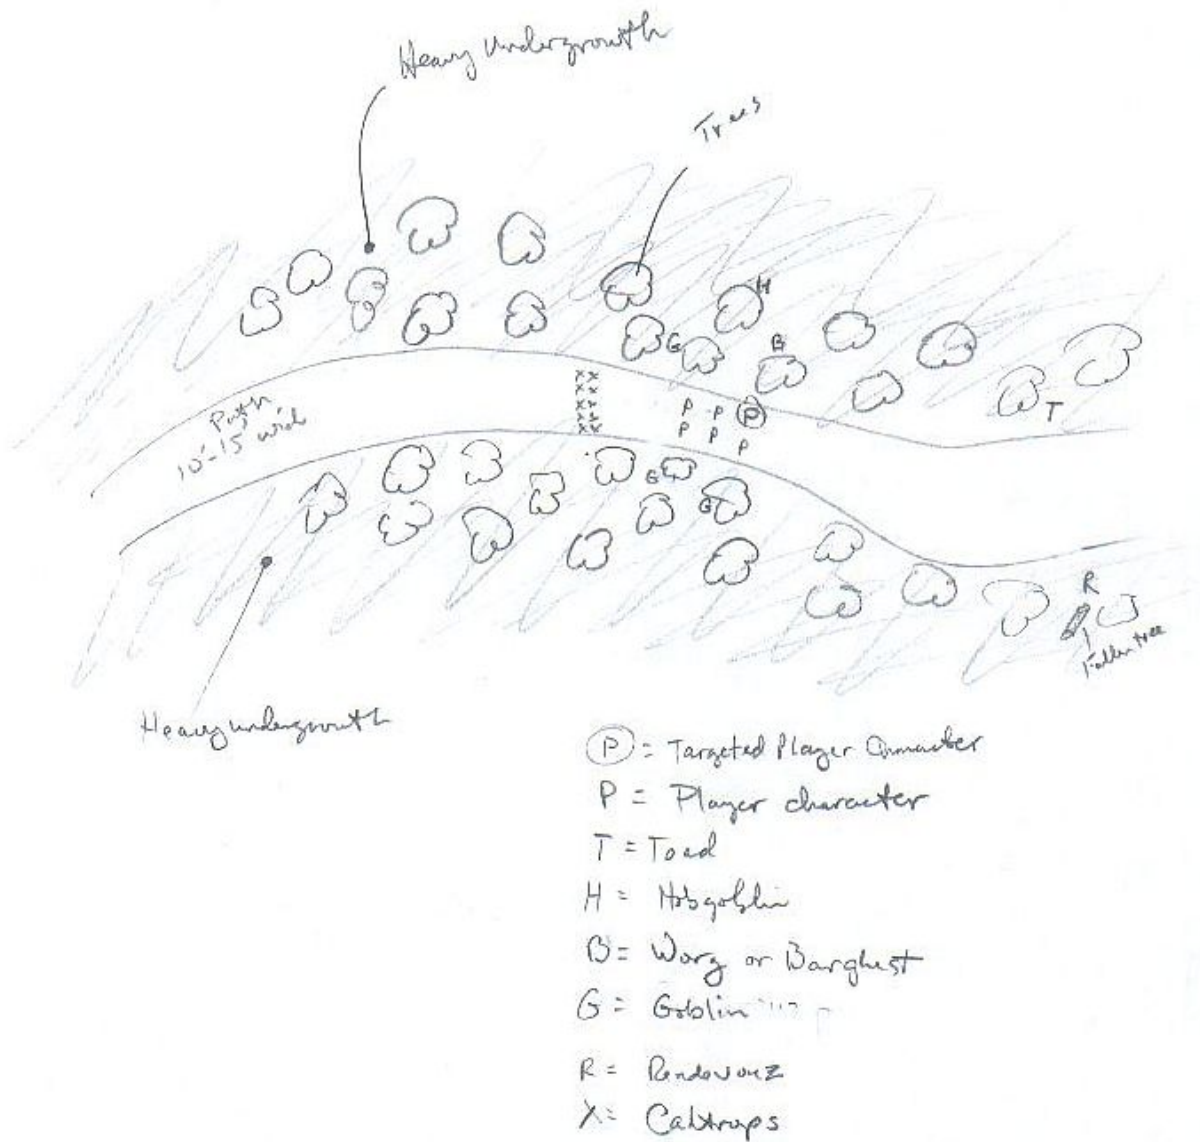 Heavy Undergrowth
Trees
H
G
B
T
Path
10'-15' wid
x x
x x
x x
x x
x x
P P P
P P P
G
G
R
Fallen tree
Heavy undergrowth
P = Targeted Player Character
P = Player character
T = Toad
H = Hobgoblin
B = Worg or Barghest
G = Goblin
R = Rendevouz
X = Caltrops